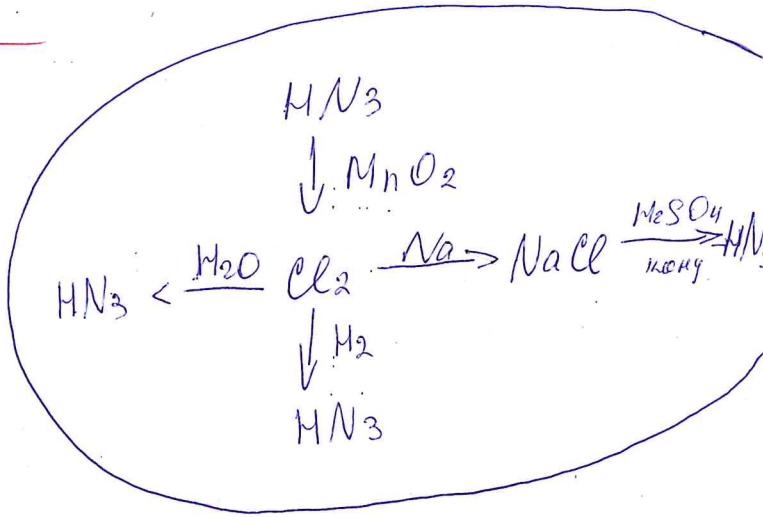 HN3
↓ MnO2
HN3 <—H2O— Cl2 —Na→ NaCl —H2SO4→ HN
↓ H2
HN3